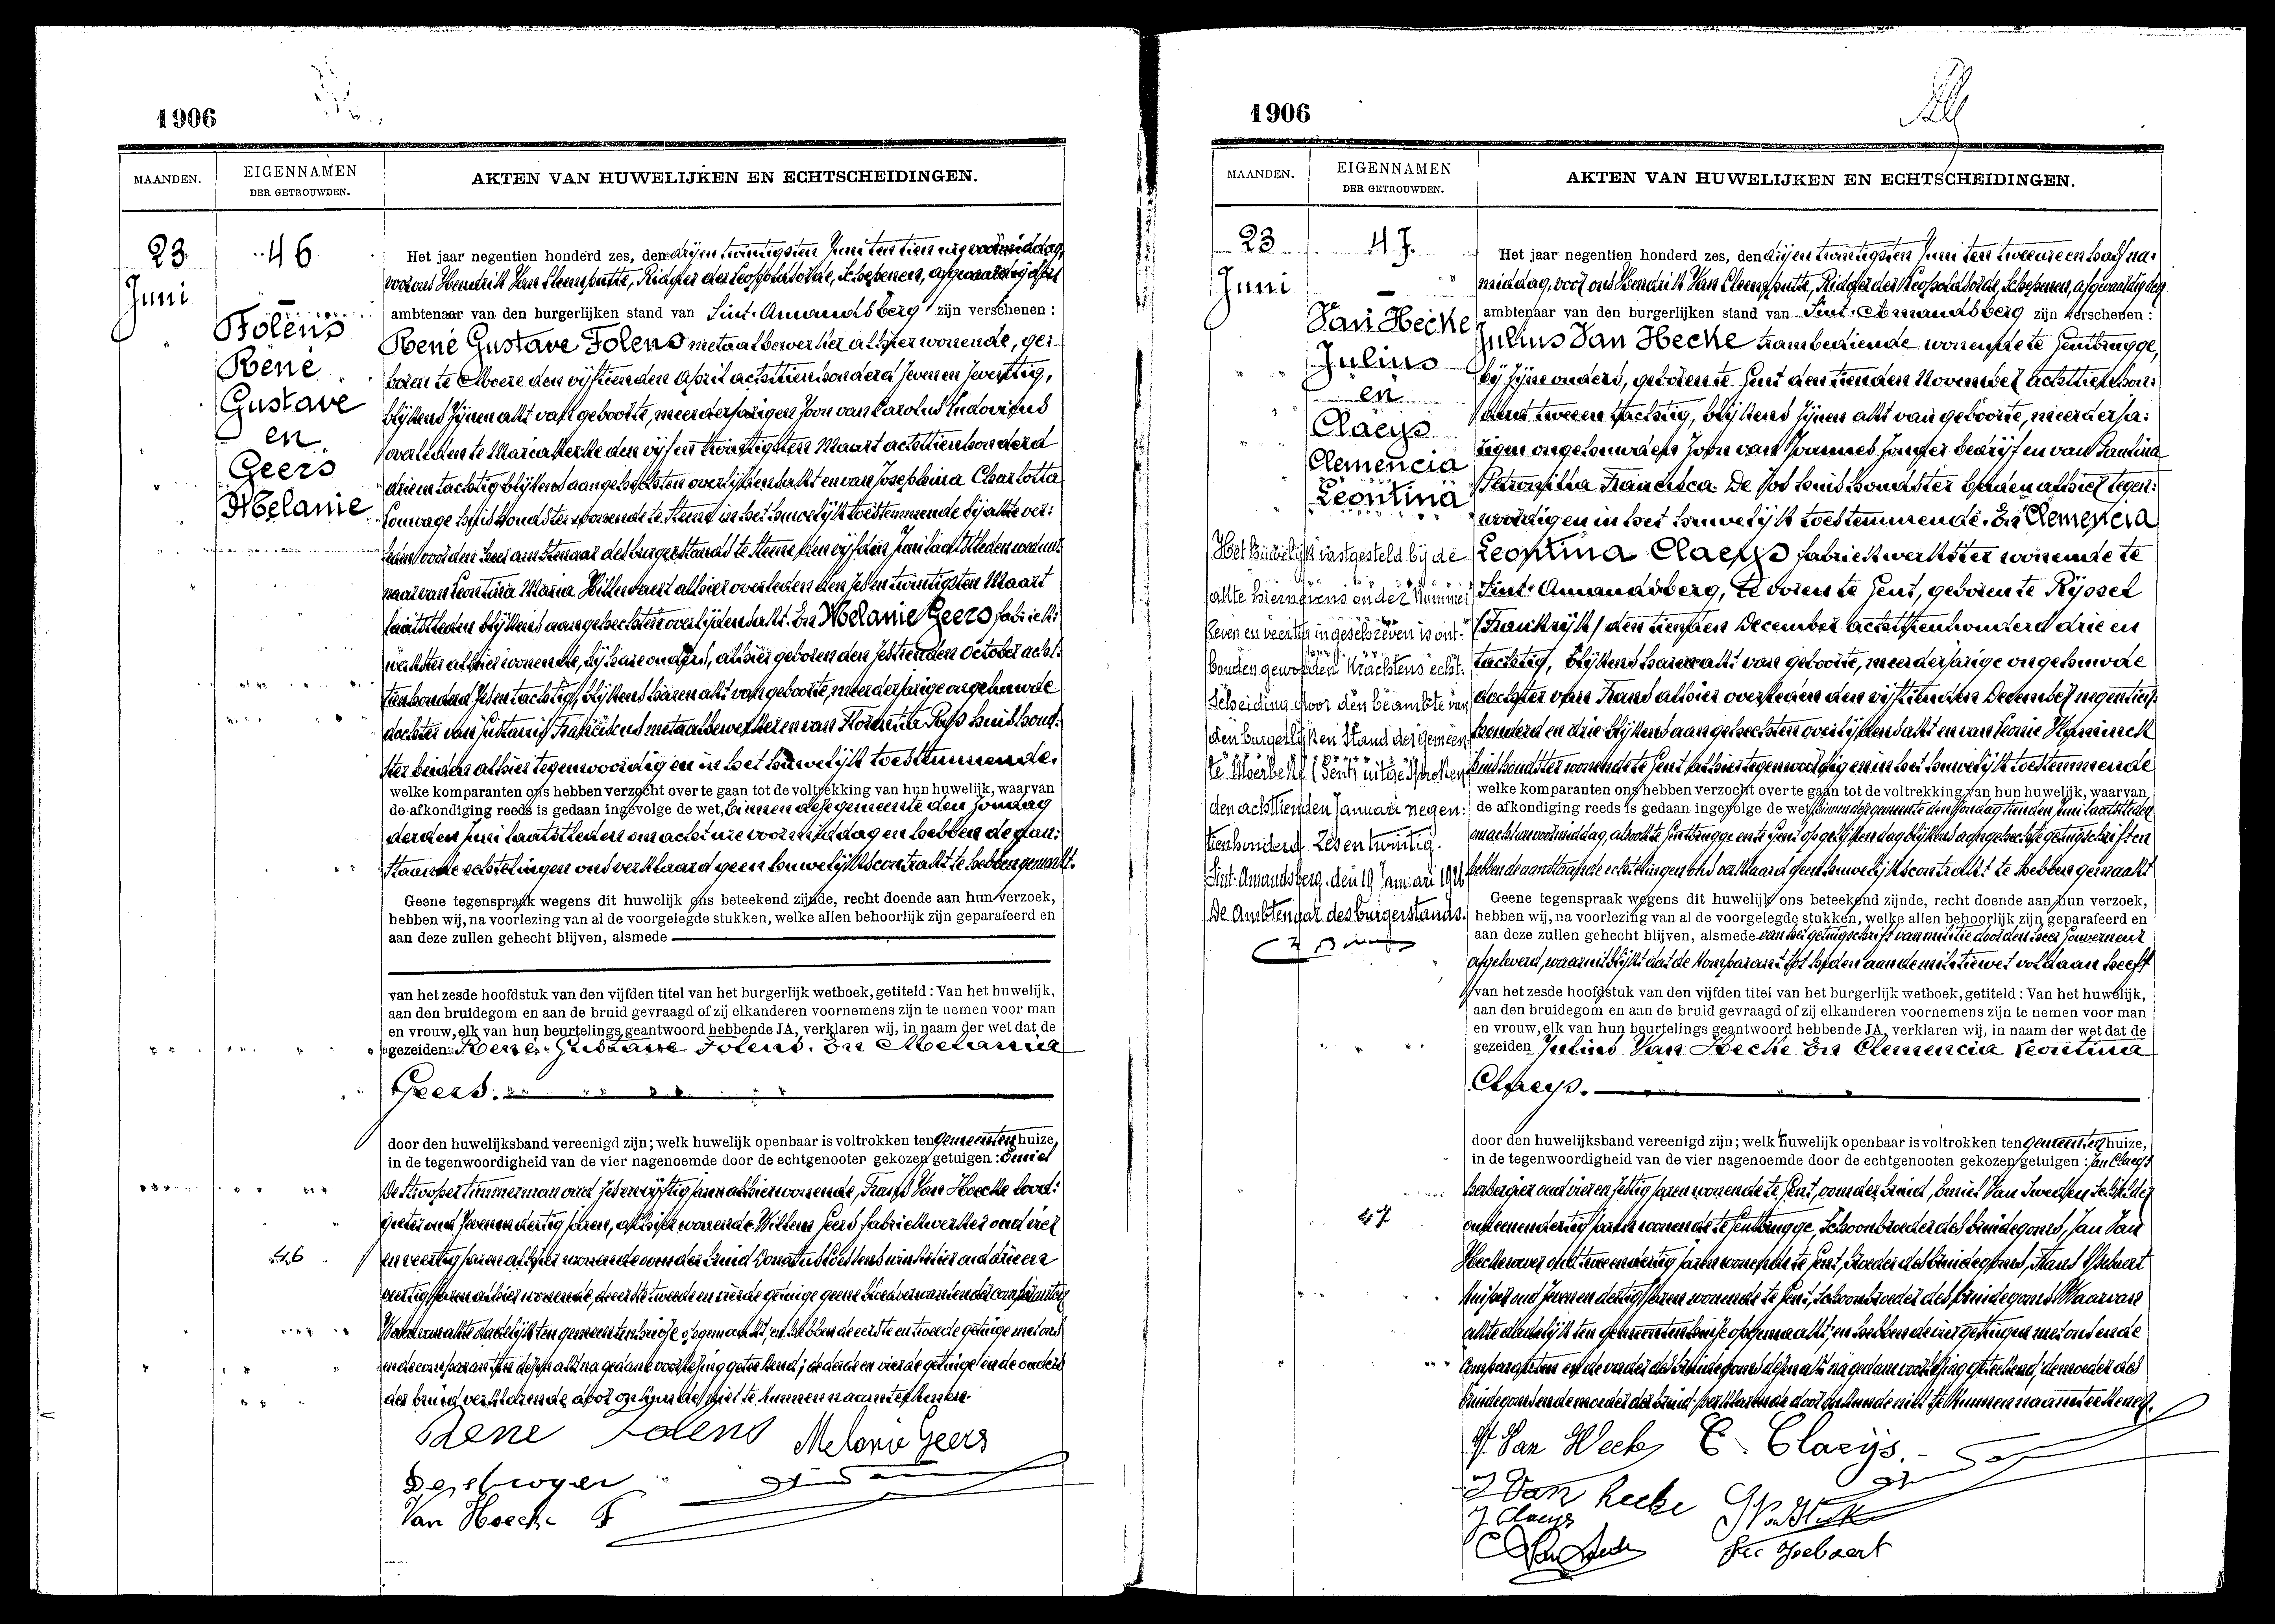 1906
MAANDEN.
EIGENNAMEN
DER GETROUWDEN.
AKTEN VAN HUWELIJKEN EN ECHTSCHEIDINGEN.
23
Juni
46
Folens
René
Gustave
en
Geers
Melanie
Het jaar negentien honderd zes, den drijen twintigsten Juni ten tien ure voormiddag,
voor ons Hendrik Van Cleemputte, Ridder der Leopoldsorde, Schepenen, afgevaardigd
ambtenaar van den burgerlijken stand van Sint-Amandsberg zijn verschenen :
René Gustave Folens metaalbewerker alhier wonende, ge-
boren te Moere den vijftienden April achttienhonderd zeven en zeventig,
blijkens zijnen akt van geboorte, meerderjarigen zoon van Carolus Ludovicus
overleden te Mariakerke den vijf en twintigsten Maart achttienhonderd
drie en tachtig blijkens aangehechten overlijdensakt en van Josephina Charlotta
huishoudster wonende te Steene in het huwelijk toestemmende bij akte ver-
leden voor den heer ambtenaar des burgerstands te Steene den vijfden Juni laatstleden weduwe-
naar van Leontina Maria alhier overleden den zes en twintigsten Maart
laatstleden blijkens aangehechten overlijdensakt. En Melanie Geers fabriek-
werkster alhier wonende, bij hare ouders, alhier geboren den zestienden October acht-
tienhonderd zes en tachtig, blijkens haren akt van geboorte, meerderjarige ongehuwde
dochter van Franciscus metaalbewerker en van Florentia huishoud-
ster beiden alhier tegenwoordig en in het huwelijk toestemmende.
welke komparanten ons hebben verzocht over te gaan tot de voltrekking van hun huwelijk, waarvan
de afkondiging reeds is gedaan ingevolge de wet, binnen deze gemeente den zondag
derden Juni laatstleden om acht ure voormiddag en hebben de aan-
staande echtelingen ons verklaard geen huwelijkscontrakt te hebben gemaakt.
Geene tegenspraak wegens dit huwelijk ons beteekend zijnde, recht doende aan hun verzoek,
hebben wij, na voorlezing van al de voorgelegde stukken, welke allen behoorlijk zijn geparafeerd en
aan deze zullen gehecht blijven, alsmede
van het zesde hoofdstuk van den vijfden titel van het burgerlijk wetboek, getiteld : Van het huwelijk,
aan den bruidegom en aan de bruid gevraagd of zij elkanderen voornemens zijn te nemen voor man
en vrouw, elk van hun beurtelings geantwoord hebbende JA, verklaren wij, in naam der wet dat de
gezeiden: René Gustave Folens. En Melania
Geers.
door den huwelijksband vereenigd zijn ; welk huwelijk openbaar is voltrokken ten gemeentenhuize,
in de tegenwoordigheid van de vier nagenoemde door de echtgenooten gekozen getuigen : Emiel
De Strooper timmerman oud zes en vijftig jaren alhier wonende, Frans Van Hoecke lood-
gieter oud zeven en dertig jaren, alhier wonende Willem Geers fabriekwerker oud vier
46
en veertig jaren alhier wonende oom der bruid Donatus winkelier oud drie en
veertig jaren alhier wonende, de eerste tweede en vierde getuige geene bloedverwanten der comparanten
Waarvan akte dadelijk ten gemeentenhuize opgemaakt, en hebben de eerste en tweede getuige met ons
en de comparanten dezen akt na gedane voorlezing geteekend; de derde en vierde getuige en de ouders
der bruid verklarende door onkunde niet te kunnen naamteekenen.
Rene Folens Melanie Geers
Destrooper
Van Hoecke F
1906
MAANDEN.
EIGENNAMEN
DER GETROUWDEN.
AKTEN VAN HUWELIJKEN EN ECHTSCHEIDINGEN.
23
Juni
47.
Van Hecke
Julius
en
Claeys
Clemencia
Leontina
Het huwelijk vastgesteld bij de
akte hiernevens onder Nummer
Zeven en veertig ingeschreven is ont-
bonden geworden krachtens echt-
scheiding door den beambte van
den burgerlijken Stand der gemeen-
te Moerbeke (Gent) uitgesproken
den achttienden Januari negen-
tienhonderd Zes en twintig.
Sint-Amandsberg, den 19 Januari 1926
De Ambtenaar des burgerstands.
Het jaar negentien honderd zes, den drij en twintigsten Juni ten twee ure en half na-
middag, voor ons Hendrik Van Cleemputte, Ridder der Leopoldsorde, Schepenen, afgevaardigden
ambtenaar van den burgerlijken stand van Sint-Amandsberg zijn verschenen :
Julius Van Hecke trambediende wonende te Gentbrugge,
bij zijne ouders, geboren te Gent den tienden November achttienhon-
derd twee en tachtig, blijkens zijnen akt van geboorte, meerderja-
rigen ongehuwden zoon van Joannes zonder bedrijf en van Paulina
Petronilla Francisca De Vos huishoudster beiden alhier tegen-
woordig en in het huwelijk toestemmende. En Clemencia
Leontina Claeys fabriekwerkster wonende te
Sint-Amandsberg, te voren te Gent, geboren te Rijssel
(Frankrijk) den tienden December achttienhonderd drie en
tachtig, blijkens haren akt van geboorte, meerderjarige ongehuwde
dochter van Frans alhier overleden den vijftienden December negentien
honderd en drie blijkens aangehechten overlijdensakt en van Leonie Haninck
huishoudster wonende te Gent alhier tegenwoordig en in het huwelijk toestemmende
welke komparanten ons hebben verzocht over te gaan tot de voltrekking van hun huwelijk, waarvan
de afkondiging reeds is gedaan ingevolge de wet binnen deze gemeente den zondag tienden Juni laatstleden
om acht ure voormiddag, alsook te Gentbrugge en te Gent op gelijken dag blijkens aangehechte getuigschriften
hebben de aanstaande echtelingen ons verklaard geen huwelijkscontrakt te hebben gemaakt
Geene tegenspraak wegens dit huwelijk ons beteekend zijnde, recht doende aan hun verzoek,
hebben wij, na voorlezing van al de voorgelegde stukken, welke allen behoorlijk zijn geparafeerd en
aan deze zullen gehecht blijven, alsmede van het getuigschrift van militie door den heer Gouverneur
afgeleverd, waaruit blijkt dat de komparant tot heden aan de militiewet voldaan heeft
van het zesde hoofdstuk van den vijfden titel van het burgerlijk wetboek, getiteld : Van het huwelijk,
aan den bruidegom en aan de bruid gevraagd of zij elkanderen voornemens zijn te nemen voor man
en vrouw, elk van hun beurtelings geantwoord hebbende JA, verklaren wij, in naam der wet dat de
gezeiden Julius Van Hecke En Clemencia Leontina
Claeys.
door den huwelijksband vereenigd zijn ; welk huwelijk openbaar is voltrokken ten gemeentenhuize,
in de tegenwoordigheid van de vier nagenoemde door de echtgenooten gekozen getuigen : Jan Claeys
herbergier oud vier en zestig jaren wonende te Gent, oom der bruid, Emiel Van schilder
47
oud een en dertig jaren wonende te Gentbrugge, schoonbroeder des bruidegoms, Jan Van
Hecke wever oud twee en dertig jaren wonende te Gent, broeder des bruidegoms, Frans Ysebaert
kuiper oud zeven en dertig jaren wonende te Gent, schoonbroeder des bruidegoms Waarvan
akte dadelijk ten gemeentenhuize opgemaakt; en hebben de vier getuigen met ons en de
Comparanten en de vader des bruidegoms dezen akt na gedane voorlezing geteekend; de moeder des
bruidegoms en de moeder der bruid verklarende door onkunde niet te kunnen naamteekenen.
Van Hecke C. Claeijs
J Van hecke
J Claeys
Ysebaert